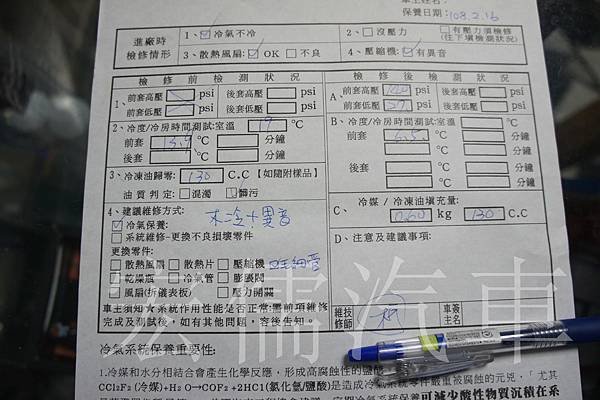 車主姓名:
保養日期: 108.2.16
進廠時檢修情形
1、☑冷氣不冷
2、□沒壓力
□有壓力須檢修(往下填檢測狀況)
3、散熱風扇:☑OK □不良
4、壓縮機:☑有異音
檢 修 前 檢 測 狀 況
1、前套高壓 psi 後套高壓 psi
前套低壓 psi 後套低壓 psi
2、冷度/冷房時間測試:室溫 19 °C
前套 13.9 °C 分鐘
後套 °C 分鐘
3、冷凍油歸零: 130 C.C【如隨附樣品】
油 質 判 定: □混濁 □髒污
4、建議維修方式: 不冷+異音
☑冷氣保養:
□系統維修-更換不良損壞零件
更換零件:
□散熱風扇 □散熱片 □壓縮機
□乾燥瓶 □冷氣管 □膨脹閥
□風扇(拆儀表板) □壓力開關
檢 修 後 檢 測 狀 況
A、前套高壓 psi 後套高壓 psi
前套低壓 psi 後套低壓 psi
B、冷度/冷房時間測試:室溫 °C
前套 6.5 °C 分鐘
後套 °C 分鐘
C、 冷媒 / 冷凍油填充量:
0.60 kg 130 C.C
D、注意及建議事項:
車主須知★系統作用性能是否正常,需前項維修
完成及測試後,如有其他問題,容後告知。
維技修師
車簽主名
冷氣系統保養重要性:
1.冷媒和水分相結合會產生化學反應,形成高腐蝕性的鹽酸
CCl2F2 (冷媒)+H2 O→COF2 +2HCl(氯化氫/鹽酸)是造成冷氣系統零件嚴重被腐蝕的元兇,「尤其
可減少酸性物質沉積在系
安儒汽車